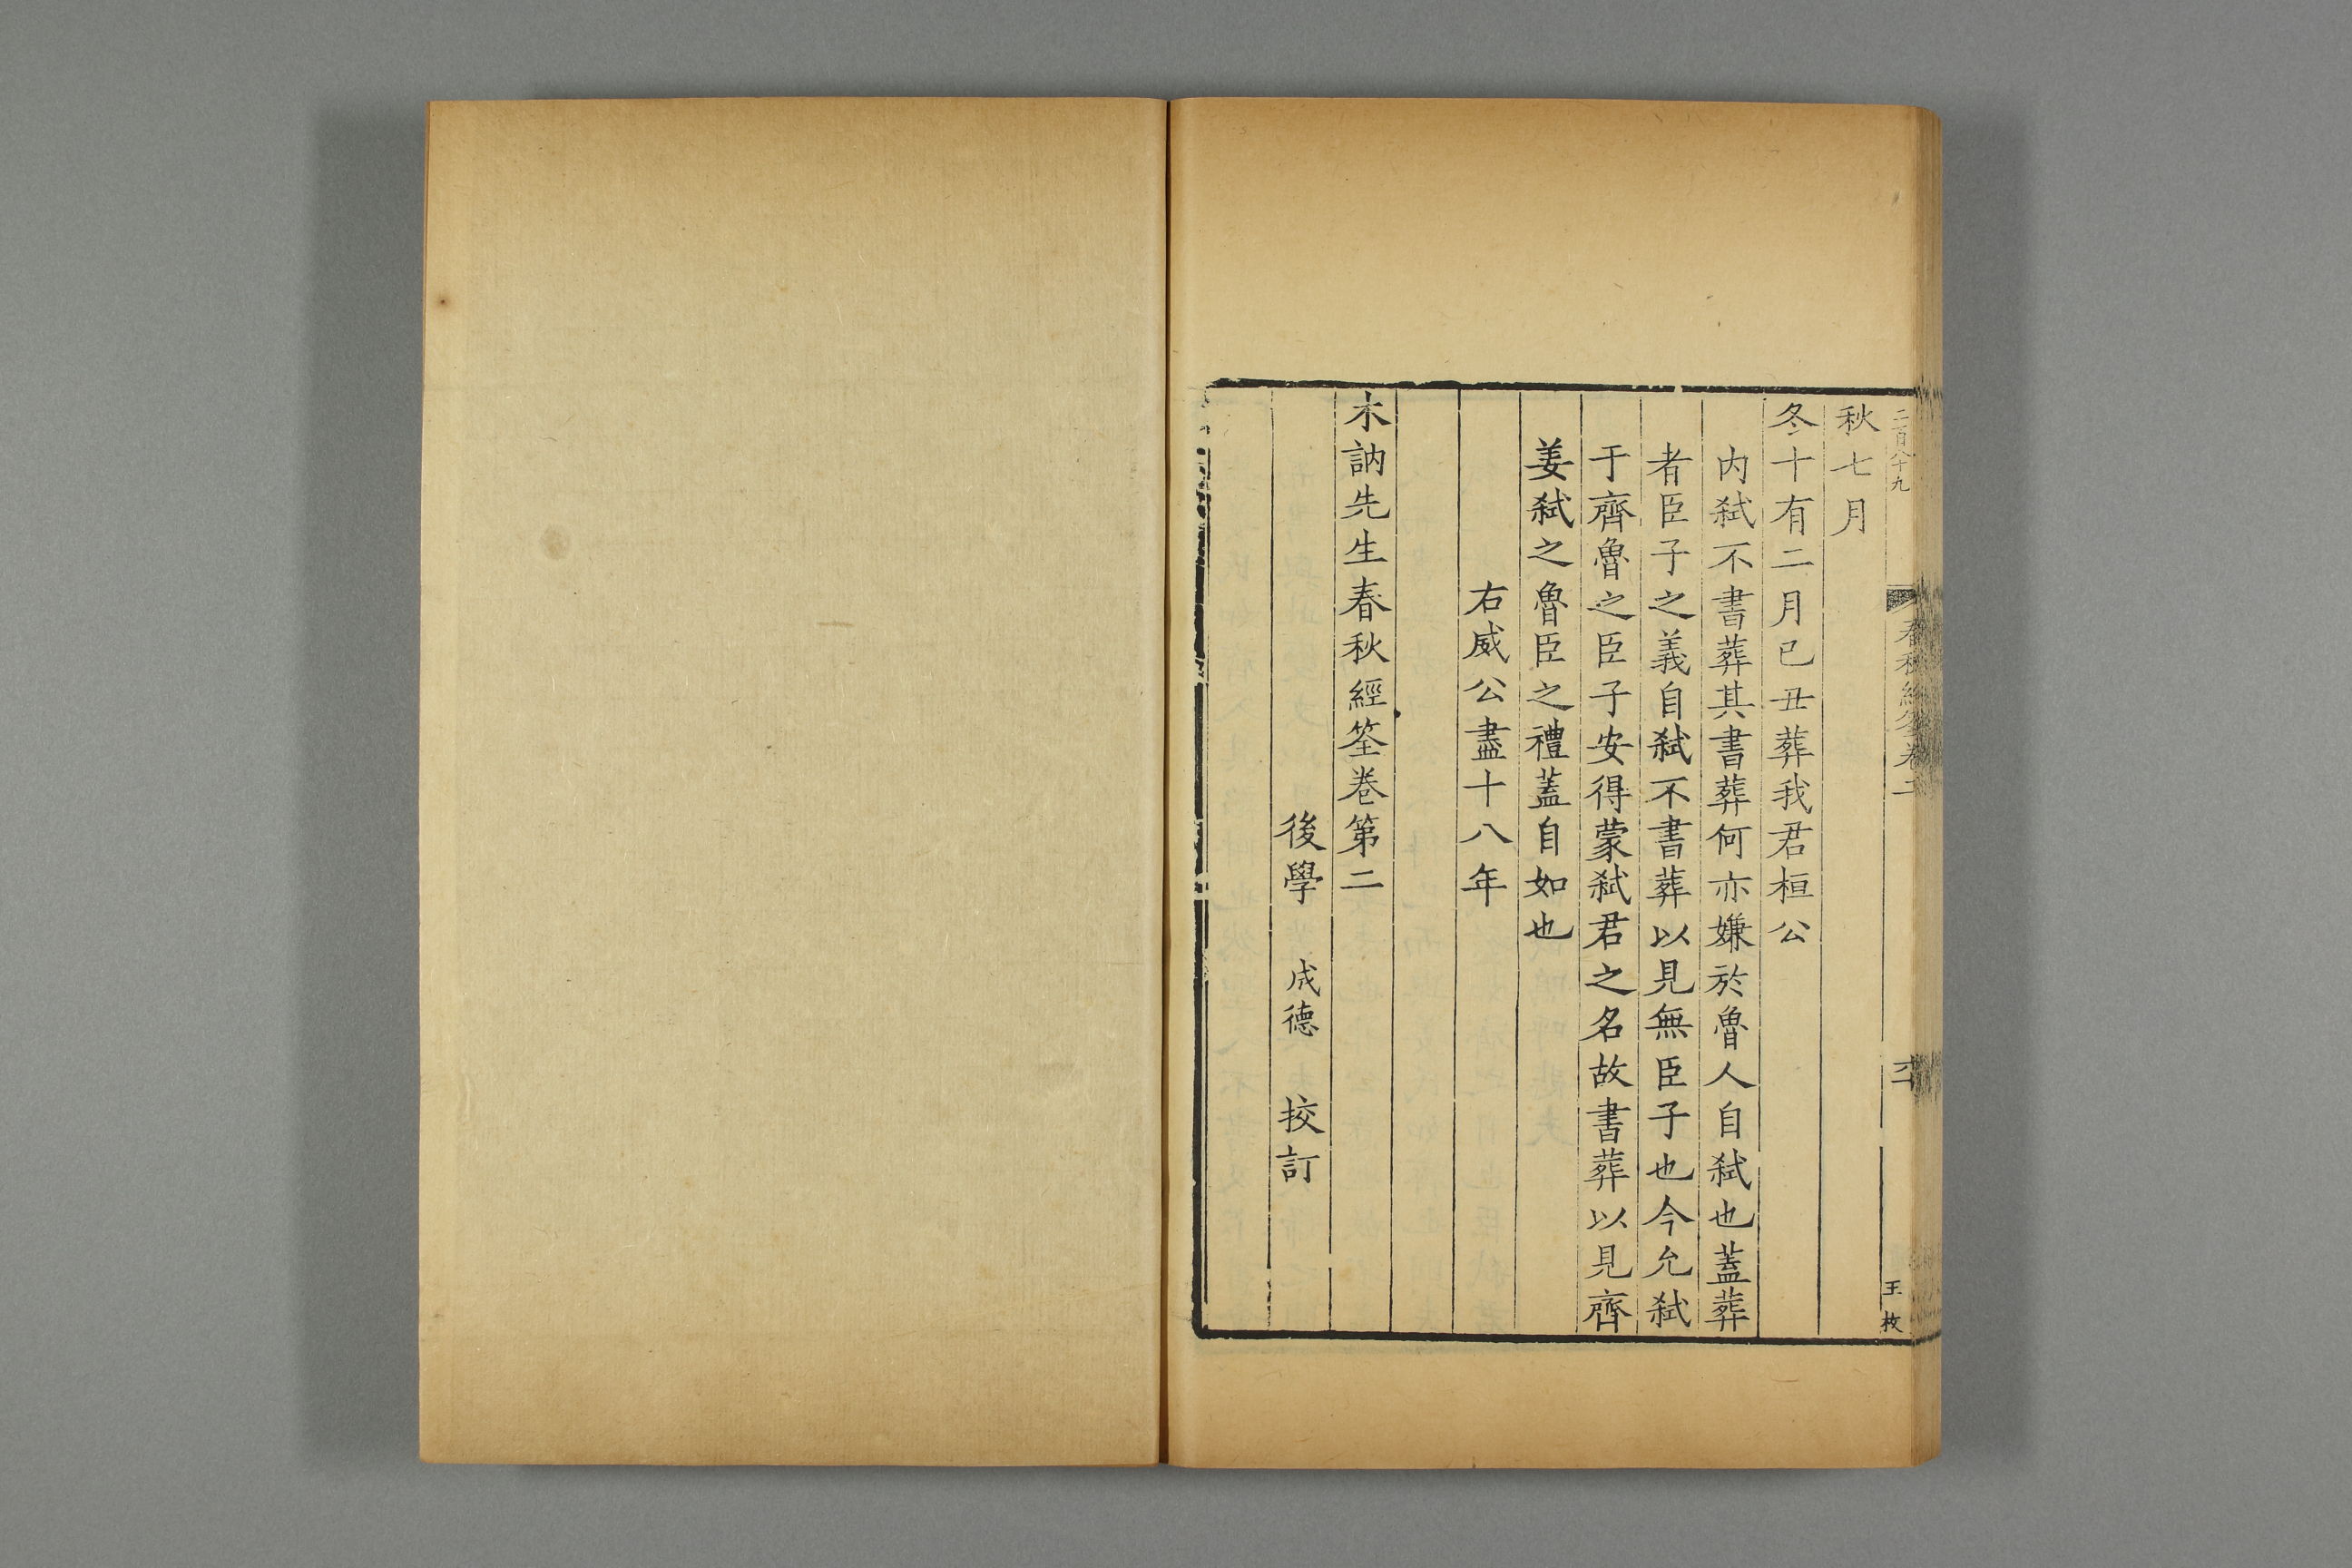 二百八十九
春秋經筌卷二
王枚
秋七月
冬十有二月已丑葬我君桓公
内弑不書葬其書葬何亦嫌於魯人自弑也蓋葬
者臣子之義自弑不書葬以見無臣子也今允弑
于齊魯之臣子安得蒙弑君之名故書葬以見齊
姜弑之魯臣之禮蓋自如也
右威公盡十八年
木訥先生春秋經筌卷第二
後學 成德 挍訂